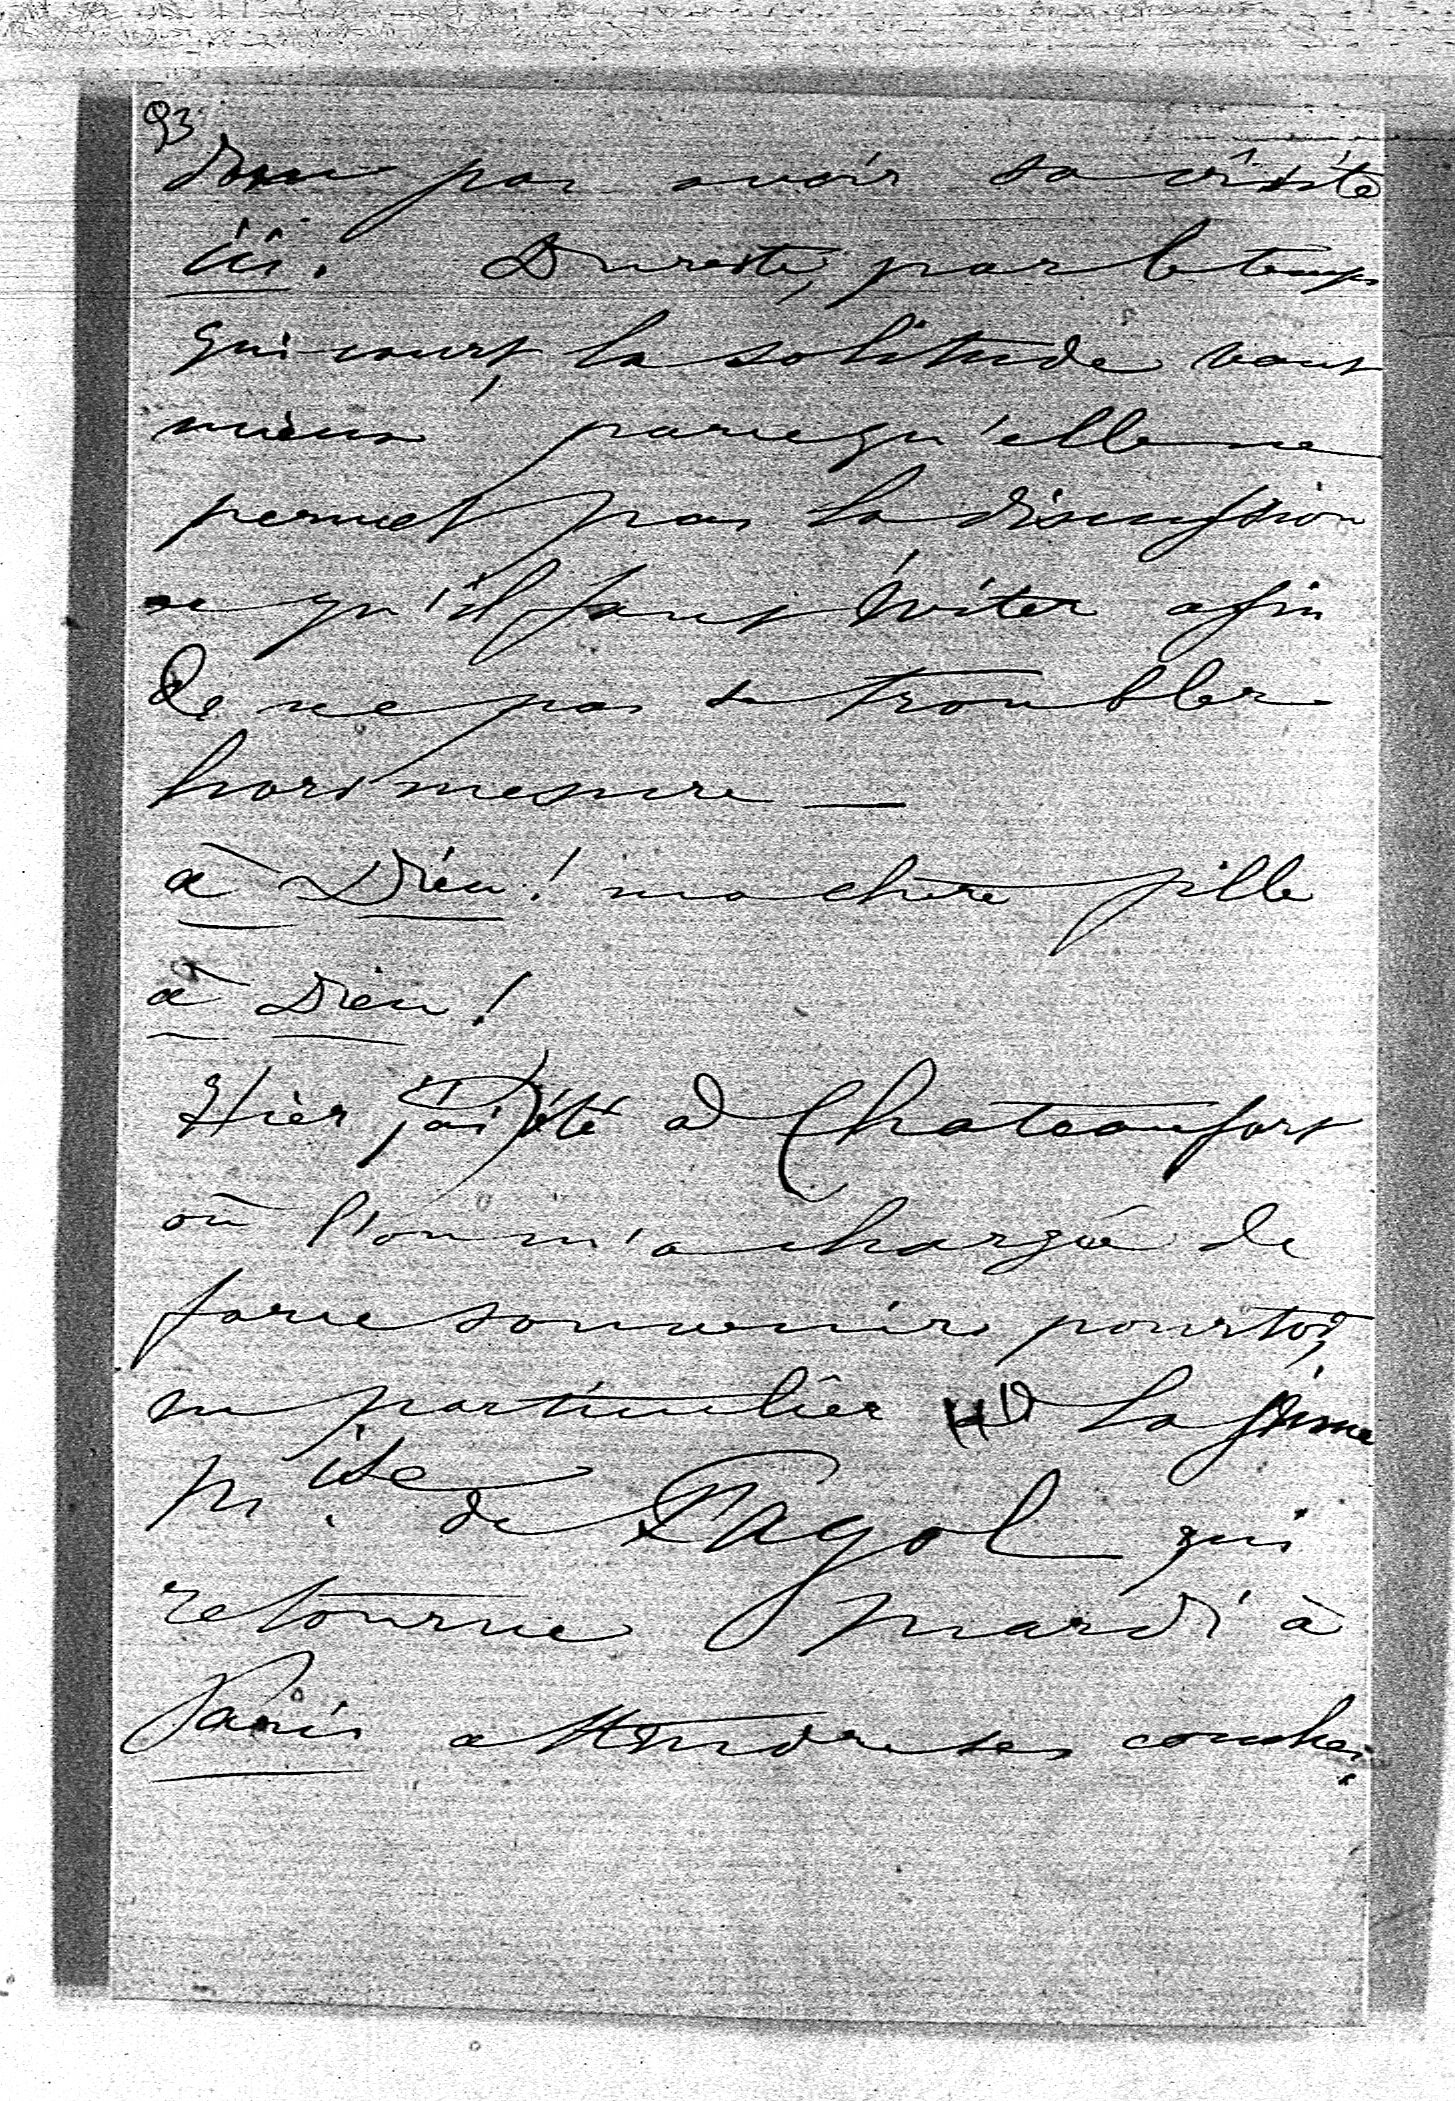 93
donc pas avoir sa visite
ici. Dureste, par le temps
qui court, la solitude vaut
mieux parcequ'elle ne
permet pas la discussion
qu'il faut éviter afin
de ne pas se troubler
hors mesure —
à Dieu! ma chère fille
à Dieu!
Hier j'ai été à Chateaufort
où l'on m'a chargé de
force souvenirs pour toi,
en particulier la jeune
M.ise de Pagol qui
retourne mardi à
Paris attendre ses couches.